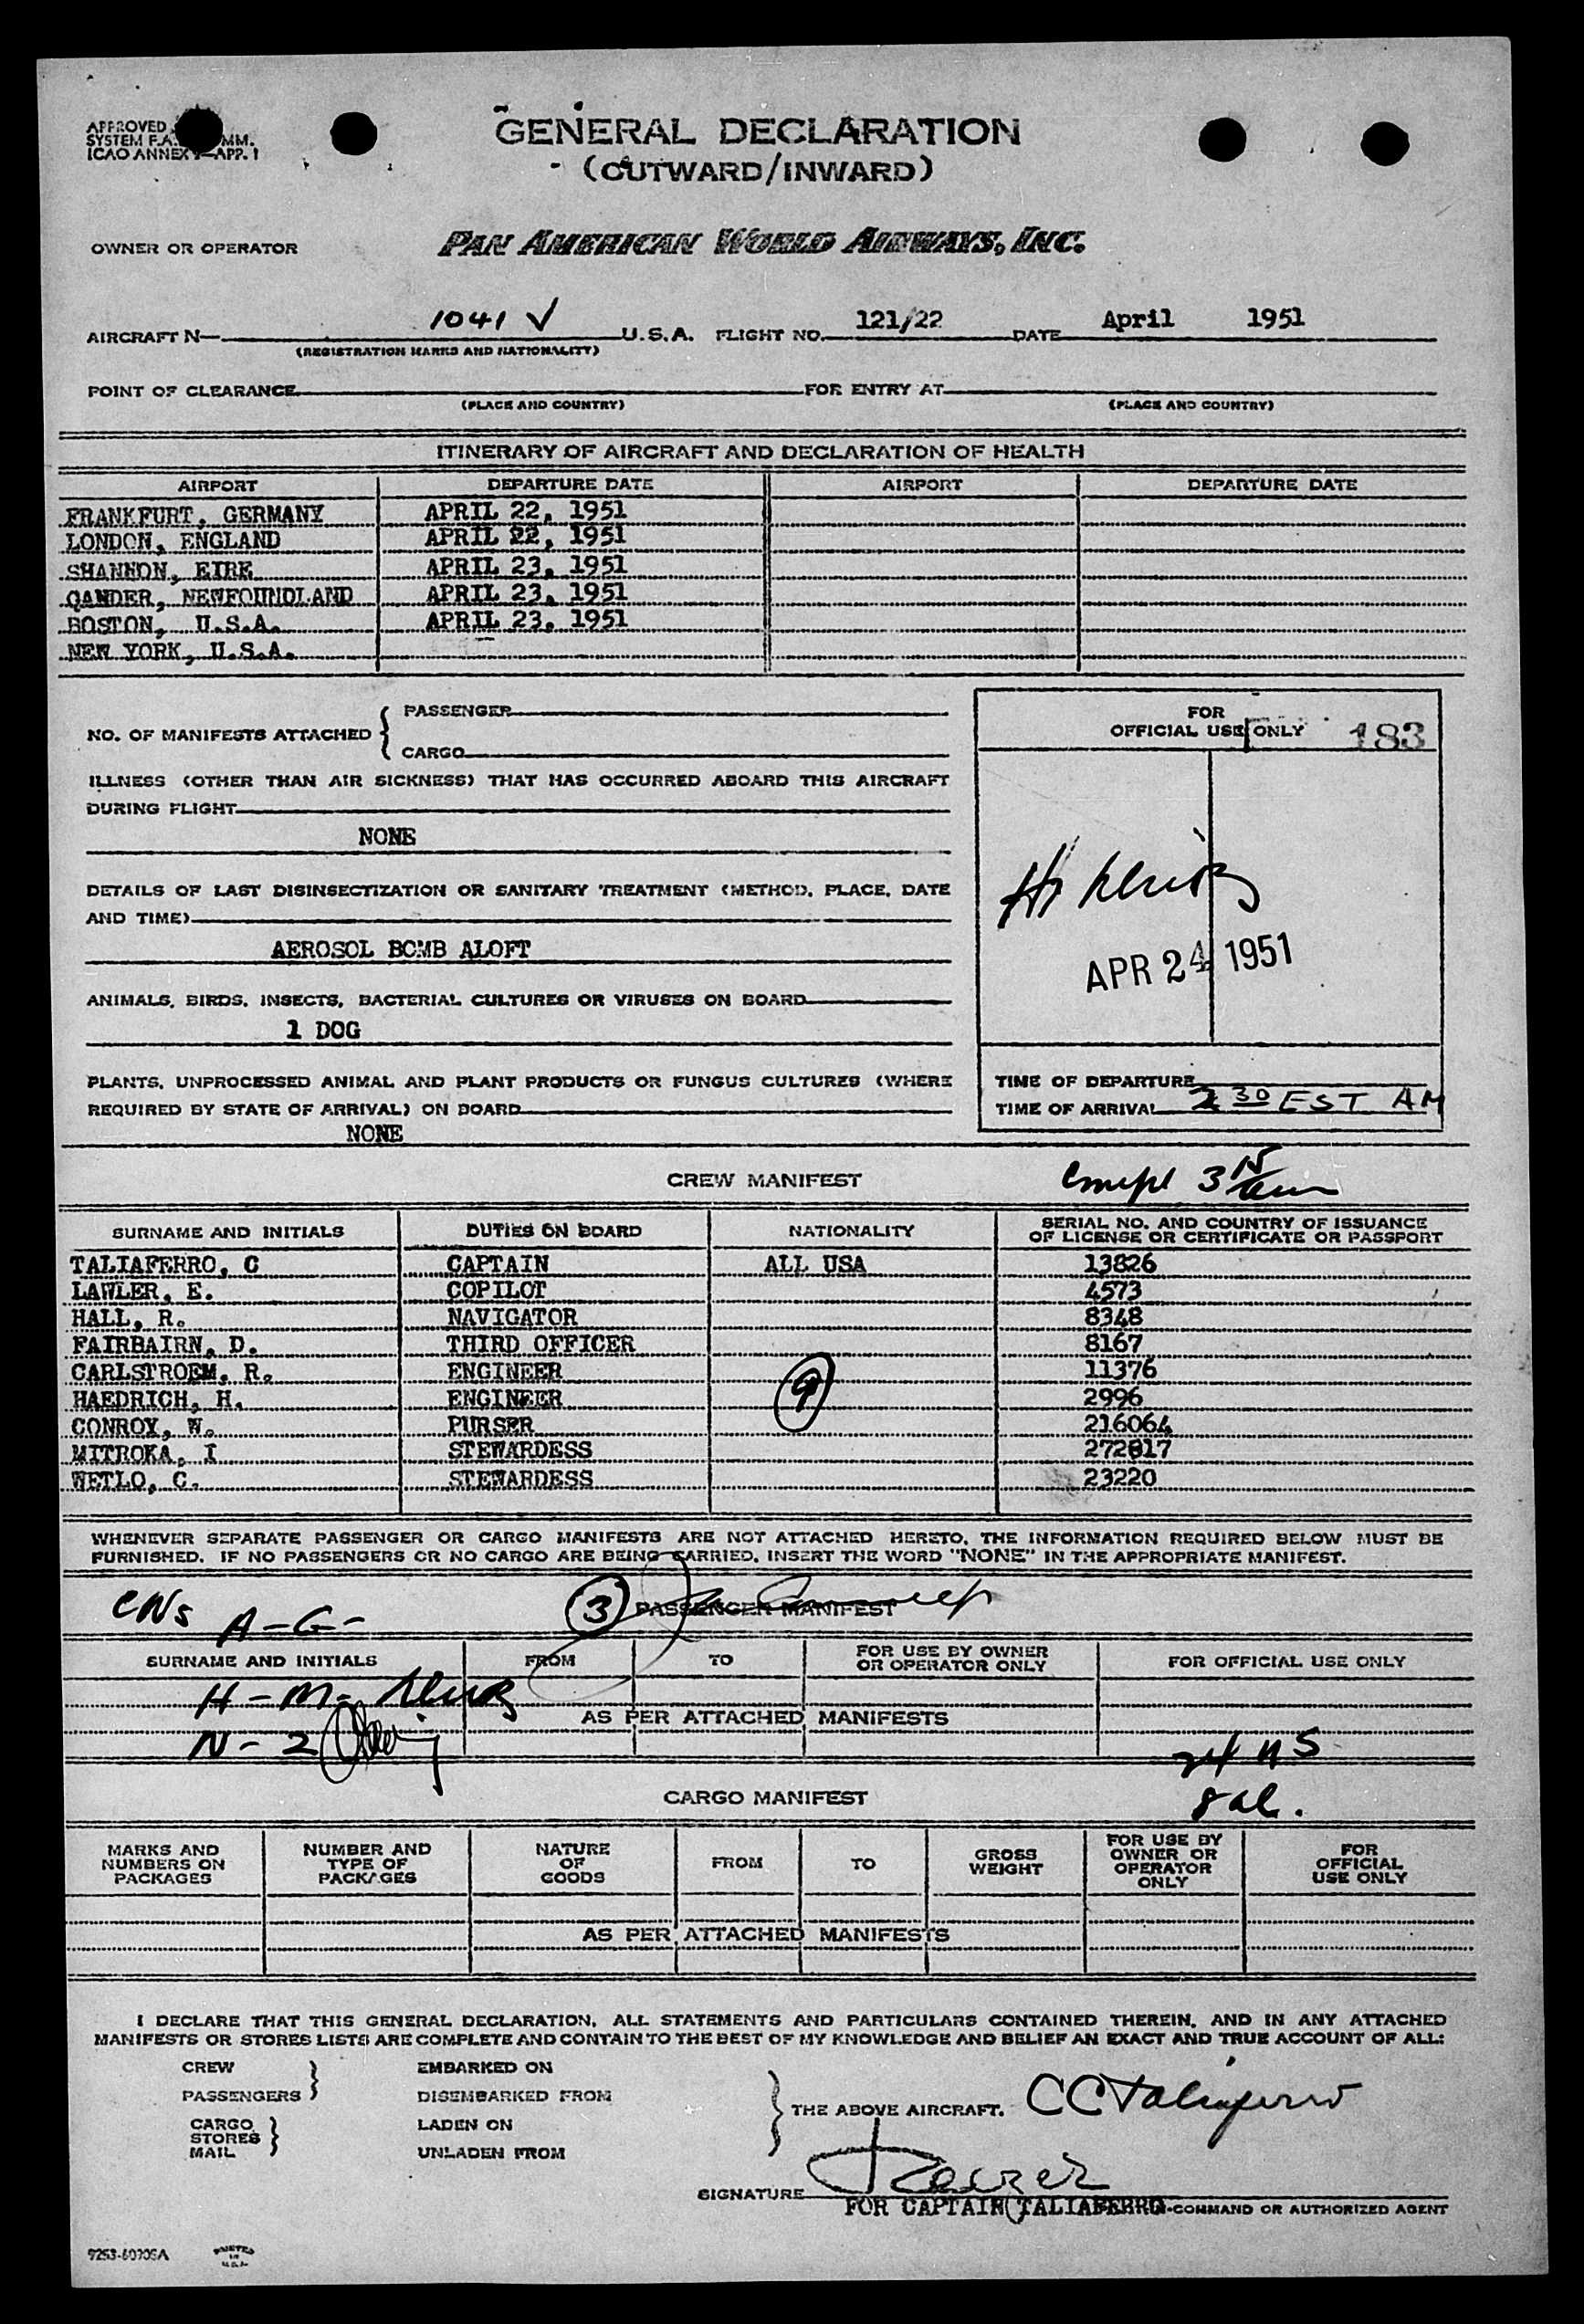 APPROVED
SYSTEM F.A. MM.
ICAO ANNEX APP. 1
GENERAL DECLARATION
(OUTWARD/INWARD)
OWNER OR OPERATOR PAN AMERICAN WORLD AIRWAYS, INC.
AIRCRAFT N— 1041 ✓ U.S.A. FLIGHT NO. 121/22 DATE April 1951
(REGISTRATION MARKS AND NATIONALITY)
POINT OF CLEARANCE FOR ENTRY AT
(PLACE AND COUNTRY) (PLACE AND COUNTRY)
ITINERARY OF AIRCRAFT AND DECLARATION OF HEALTH
AIRPORT DEPARTURE DATE AIRPORT DEPARTURE DATE
FRANKFURT, GERMANY APRIL 22, 1951
LONDON, ENGLAND APRIL 22, 1951
SHANNON, EIRE APRIL 23, 1951
GANDER, NEWFOUNDLAND APRIL 23, 1951
BOSTON, U.S.A. APRIL 23, 1951
NEW YORK, U.S.A.
NO. OF MANIFESTS ATTACHED { PASSENGER
CARGO
FOR
OFFICIAL USE ONLY 183
ILLNESS (OTHER THAN AIR SICKNESS) THAT HAS OCCURRED ABOARD THIS AIRCRAFT
DURING FLIGHT
NONE
DETAILS OF LAST DISINSECTIZATION OR SANITARY TREATMENT (METHOD, PLACE, DATE
AND TIME)
AEROSOL BOMB ALOFT
APR 24 1951
ANIMALS, BIRDS, INSECTS, BACTERIAL CULTURES OR VIRUSES ON BOARD
1 DOG
PLANTS, UNPROCESSED ANIMAL AND PLANT PRODUCTS OR FUNGUS CULTURES (WHERE
REQUIRED BY STATE OF ARRIVAL) ON BOARD
NONE
TIME OF DEPARTURE
TIME OF ARRIVAL 2 30 EST AM
CREW MANIFEST
3 15
SURNAME AND INITIALS DUTIES ON BOARD NATIONALITY SERIAL NO. AND COUNTRY OF ISSUANCE
OF LICENSE OR CERTIFICATE OR PASSPORT
TALIAFERRO, C CAPTAIN ALL USA 13826
LAWLER, E. COPILOT 4573
HALL, R. NAVIGATOR 8348
FAIRBAIRN, D. THIRD OFFICER 8167
CARLSTROEM, R. ENGINEER 11376
HAEDRICH, H. ENGINEER 9 2996
CONROY, W. PURSER 216064
MITROKA, I STEWARDESS 272817
WETLO, C. STEWARDESS 23220
WHENEVER SEPARATE PASSENGER OR CARGO MANIFESTS ARE NOT ATTACHED HERETO, THE INFORMATION REQUIRED BELOW MUST BE
FURNISHED. IF NO PASSENGERS OR NO CARGO ARE BEING CARRIED, INSERT THE WORD "NONE" IN THE APPROPRIATE MANIFEST.
A-G- 3 PASSENGER MANIFEST
SURNAME AND INITIALS FROM TO FOR USE BY OWNER
OR OPERATOR ONLY FOR OFFICIAL USE ONLY
H-M-
AS PER ATTACHED MANIFESTS
N-Z
24 US
8 al.
CARGO MANIFEST
MARKS AND
NUMBERS ON
PACKAGES
NUMBER AND
TYPE OF
PACKAGES
NATURE
OF
GOODS
FROM
TO
GROSS
WEIGHT
FOR USE BY
OWNER OR
OPERATOR
ONLY
FOR
OFFICIAL
USE ONLY
AS PER ATTACHED MANIFESTS
I DECLARE THAT THIS GENERAL DECLARATION, ALL STATEMENTS AND PARTICULARS CONTAINED THEREIN, AND IN ANY ATTACHED
MANIFESTS OR STORES LISTS ARE COMPLETE AND CONTAIN TO THE BEST OF MY KNOWLEDGE AND BELIEF AN EXACT AND TRUE ACCOUNT OF ALL:
CREW EMBARKED ON
PASSENGERS DISEMBARKED FROM
THE ABOVE AIRCRAFT. CC Taliaferro
CARGO LADEN ON
STORES
MAIL UNLADEN FROM
SIGNATURE
FOR CAPTAIN TALIAFERRO COMMAND OR AUTHORIZED AGENT
PRINTED
IN
U.S.A.